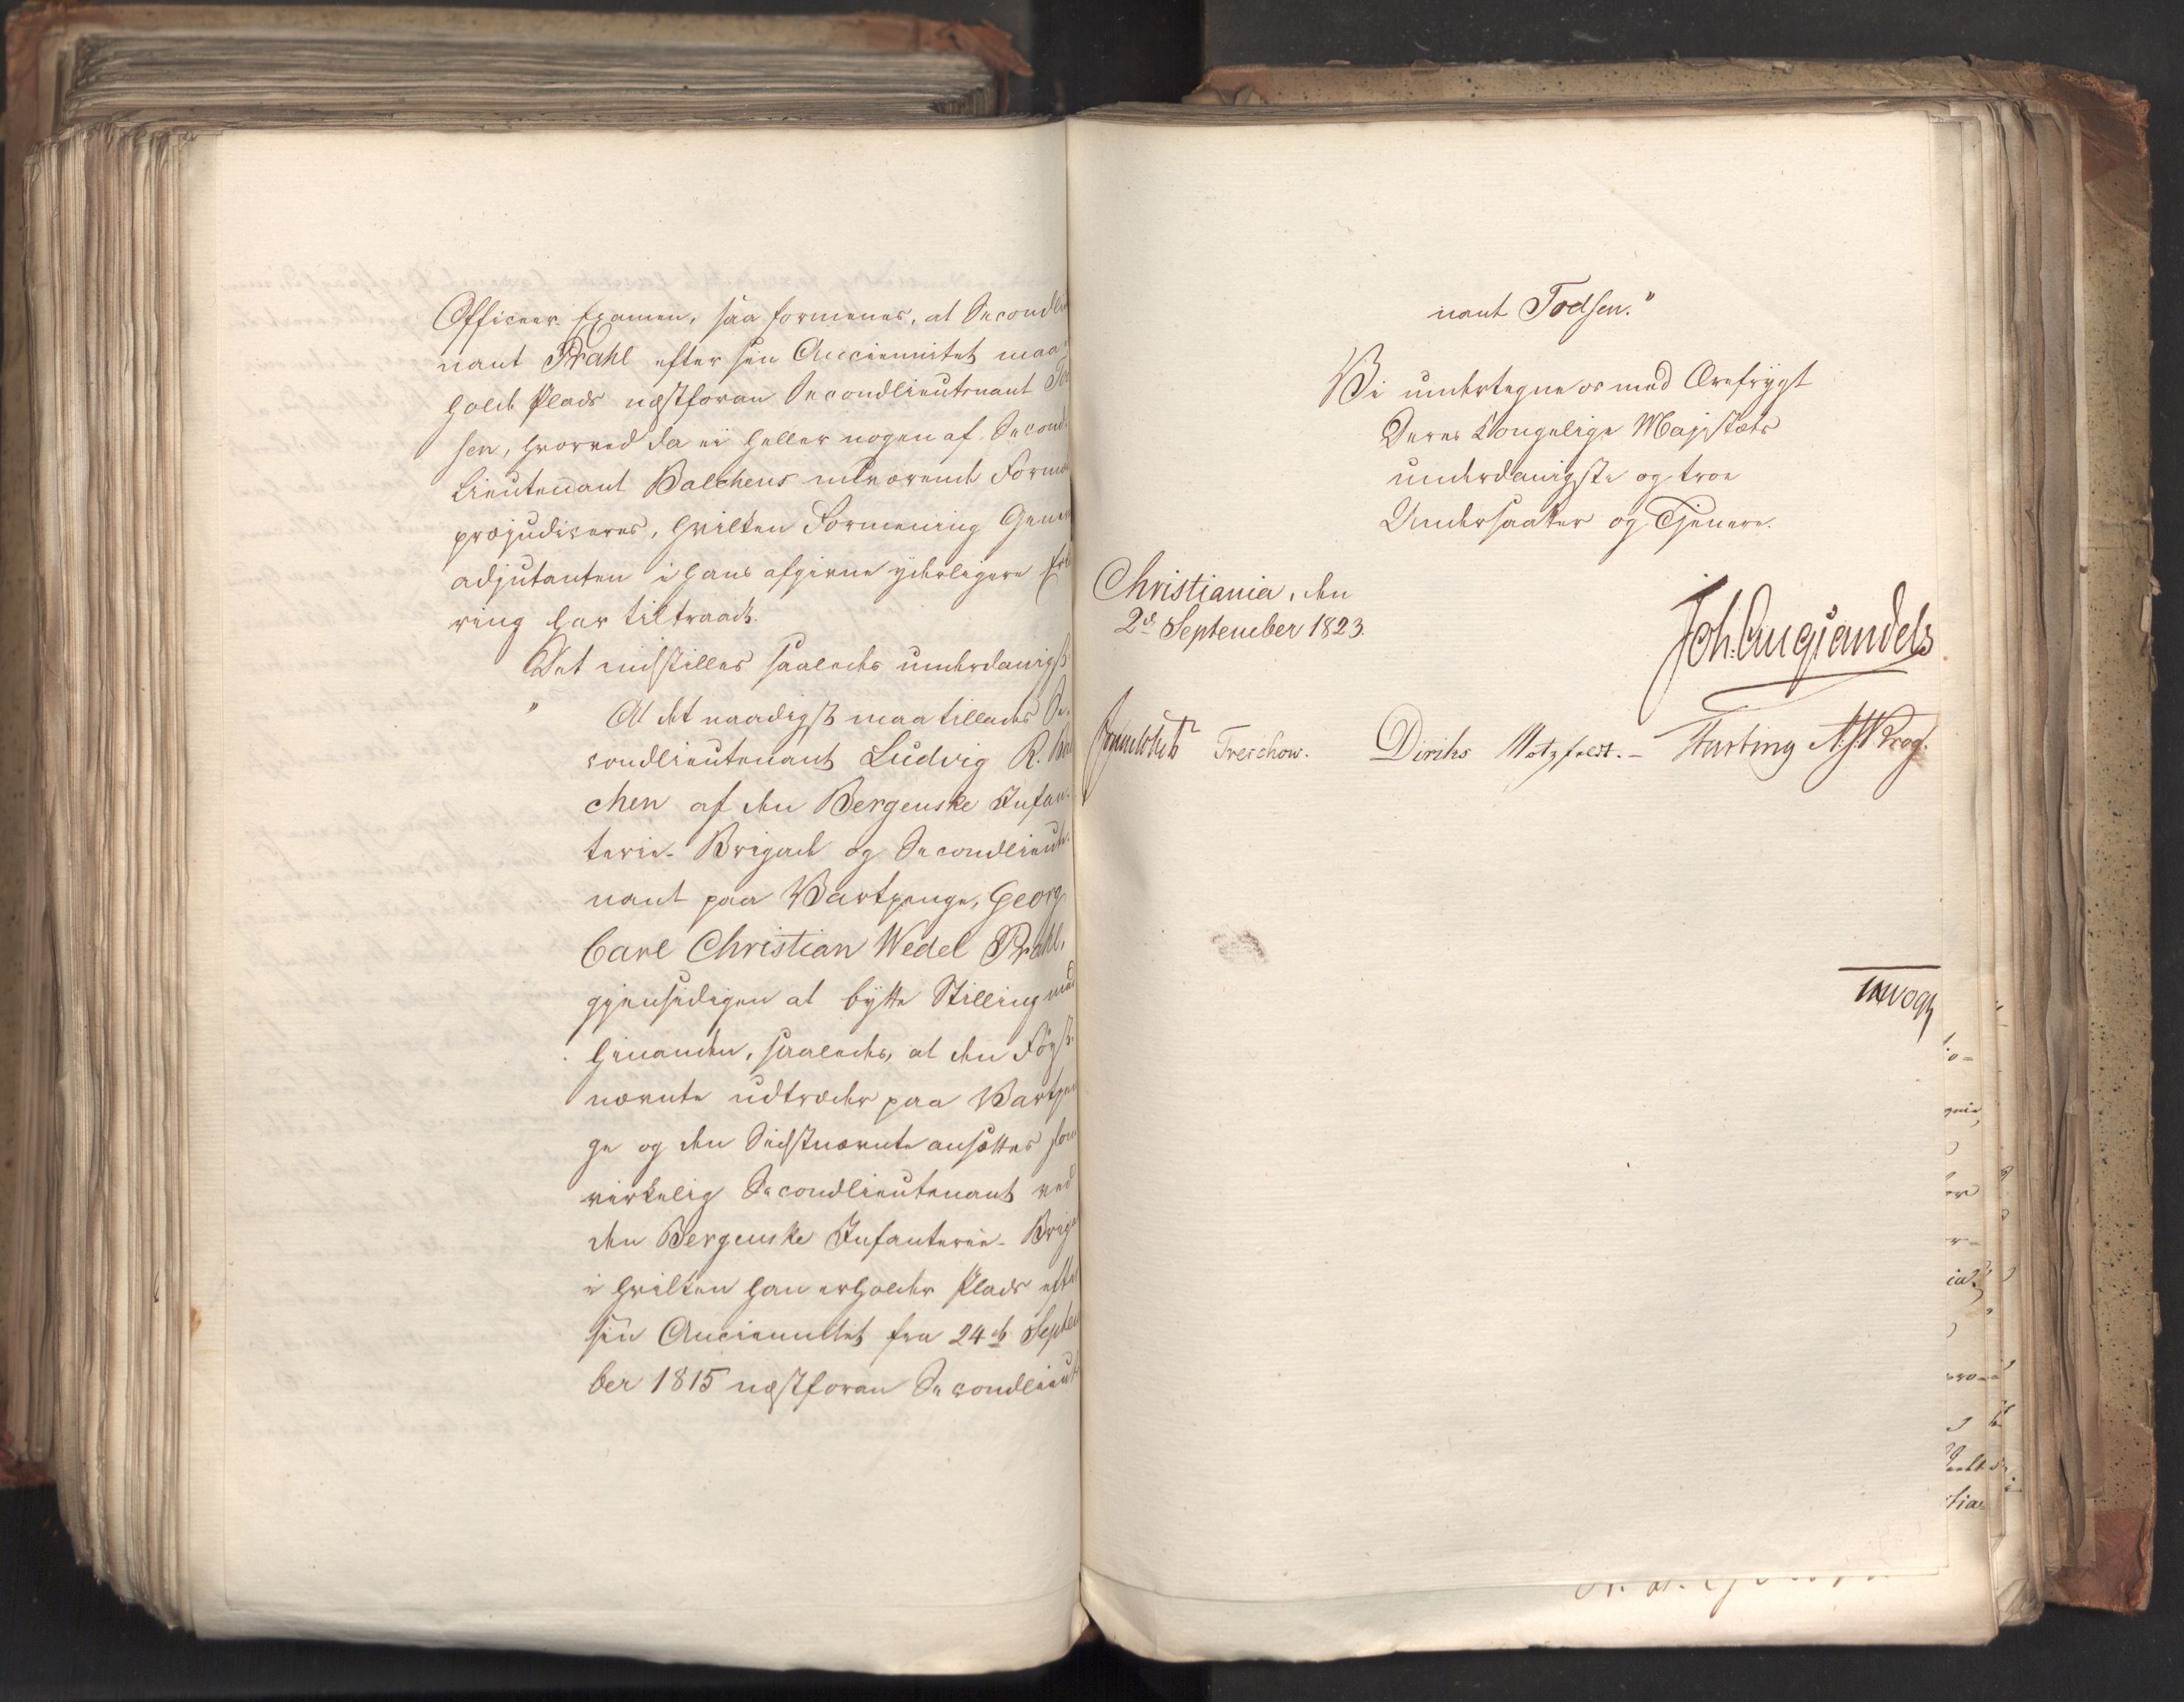 Officeer Examen, saa formenes, at Secondlie
nant Prahl efter sin Anciennitet maa
holde Plads næstforan Secondlieutenant Tod
sen, hvorved da ei heller nogen af Second
Lieutenant Balchens nuværende Forme
præjudiceres, hvilken Formening General
adjutanten i hans afgivne yderligere Erklæ
ring har tiltraadt.
Det indstilles saaledes underdanigst:
" At det naadigst maa tillades Se-
condlieutenant Ludvig R. Bal
chen af den Bergenske Infan-
terie-Brigade og Secondlieute-
nant paa Vartpenge, Georg
Carl Christian Wedel Prahl,
gjensidigen at bytte Stilling med
hinanden, saaledes, at den Først-
nævnte udtræder paa Vartpen
ge og den Sidstnævnte ansættes som
virkelig Secondlieutenant ved
den Bergenske Infanterie-Briga
i hvilken han erholder Plads efter
sin Anciennitet fra 24de Septem
ber 1815 næstforan Secondlieute
nant Todsen."
Vi undertegne os med Ærefrygt
Deres Kongelige Majestæts
underdanigste og troe
Undersaatter og Tjenere.
Christiania, den
2d September 1823.
Joh: Aug Sandels
Sommerhielm Treschow. Diriks Motzfeldt. - Fasting A. J. Krog.